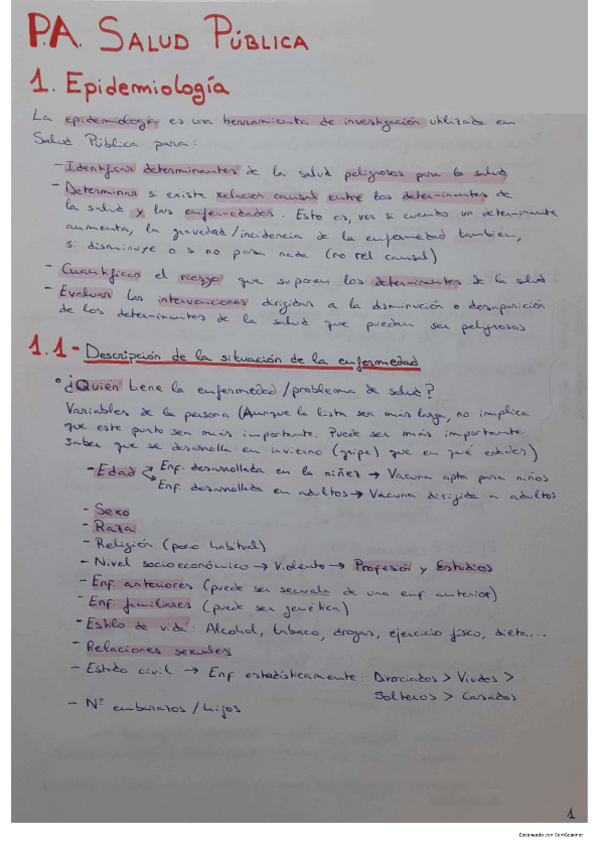 P.A. SALUD PÚBLICA
1. Epidemiología
La epidemiología es una herramienta de investigación utilizada en
Salud Pública para:
- Identificar determinantes de la salud peligrosos para la salud
- Determinar si existe relación causal entre los determinantes de
la salud y las enfermedades. Esto es, ver si cuando un determinante
aumenta, la gravedad/incidencia de la enfermedad también,
si disminuye o si no pasa nada (no rel causal)
- Cuantificar el riesgo que suponen los determinantes de la salud
- Evaluar las intervenciones dirigidas a la disminución o desaparición
de los determinantes de la salud que puedan ser peligrosos
1.1- Descripción de la situación de la enfermedad
• ¿Quién tiene la enfermedad/problema de salud?
Variables de la persona (Aunque la lista sea más larga, no implica
que este punto sea más importante. Puede ser más importante
saber que se desarrolla en invierno (gripe) que en qué edades)
- Edad → Enf. desarrollada en la niñez → Vacuna apta para niños
→ Enf. desarrollada en adultos → Vacuna dirigida a adultos
- Sexo
- Raza
- Religión (poco habitual)
- Nivel socioeconómico → → Profesión y Estudios
- Enf. anteriores (puede ser secuela de una enf. anterior)
- Enf. familiares (puede ser genética)
- Estilo de vida: Alcohol, tabaco, drogas, ejercicio físico, dieta...
- Relaciones sexuales
- Estado civil → Enf estadísticamente: Divorciados > Viudos >
Solteros > Casados
- Nº embarazos / hijos
1
Escaneado con CamScanner